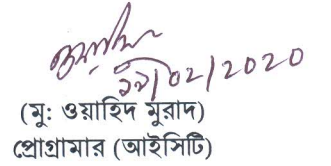 ১৯/০২/2020
(মু: ওয়াহিদ মুরাদ)
প্রোগ্রামার (আইসিটি)